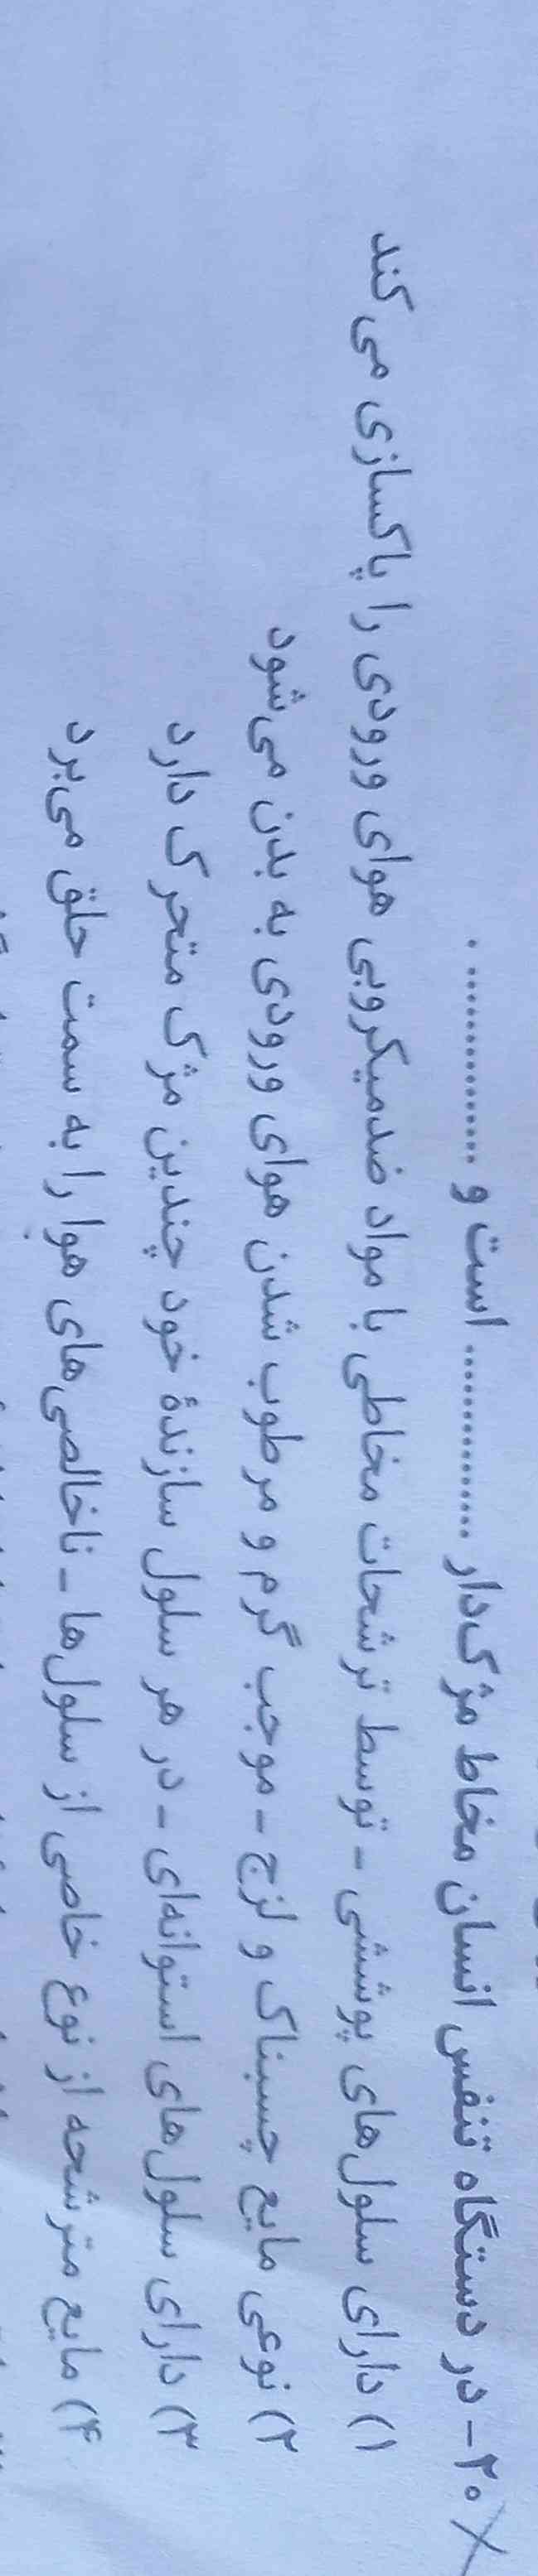 ۲۰- در دستگاه تنفس انسان مخاط مژک‌دار ................ است و ................ .
۱) دارای سلول‌های پوششی - توسط ترشحات مخاطی با مواد ضدمیکروبی هوای ورودی را پاکسازی می‌کند
۲) نوعی مایع چسبناک و لزج - موجب گرم و مرطوب شدن هوای ورودی به بدن می‌شود
۳) دارای سلول‌های استوانه‌ای - در هر سلول سازندهٔ خود چندین مژک متحرک دارد
۴) مایع مترشحه از نوع خاصی از سلول‌ها - ناخالصی‌های هوا را به سمت حلق می‌برد